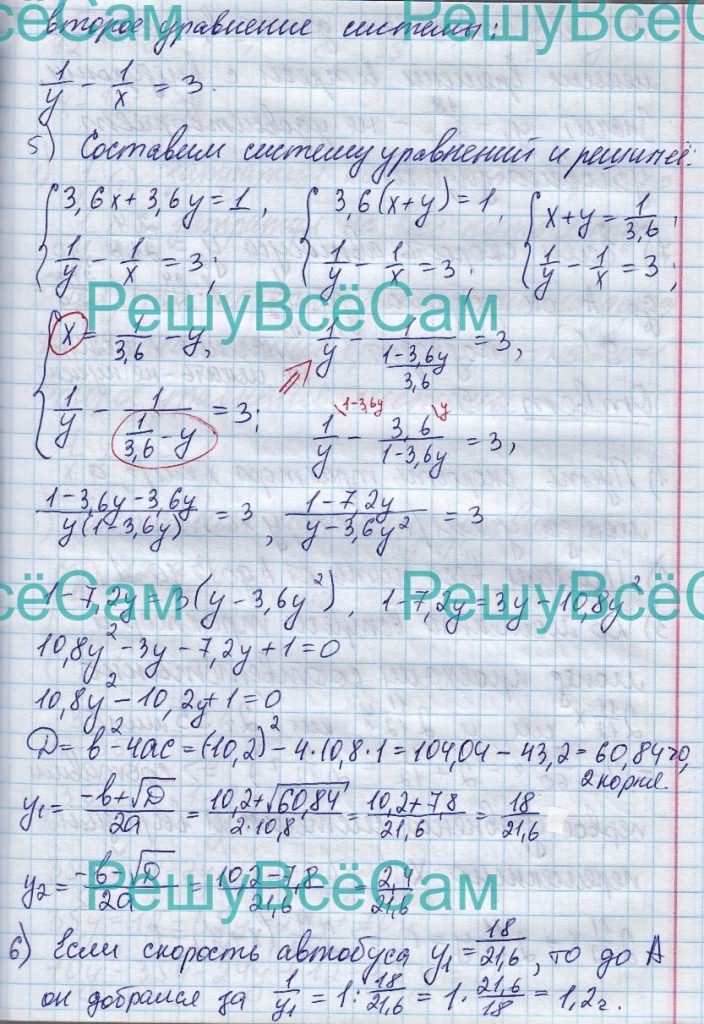 второе уравнение системы:
1/y - 1/x = 3.
5) Составим систему уравнений и решим её:
{ 3,6x + 3,6y = 1, { 3,6(x+y) = 1, { x+y = 1/3,6;
1/y - 1/x = 3; 1/y - 1/x = 3; 1/y - 1/x = 3;
РешуВсёСам
{ x = 1/3,6 - y, 1/y - 1/((1-3,6y)/3,6) = 3,
1/y - 1/(1/3,6 - y) = 3; ⇒ 1/y \1-3,6y - 3,6/(1-3,6y) \y = 3,
(1-3,6y-3,6y)/(y(1-3,6y)) = 3, (1-7,2y)/(y-3,6y²) = 3
1-7,2y = 3(y-3,6y²), 1-7,2y = 3y-10,8y²
10,8y² - 3y - 7,2y + 1 = 0
10,8y² - 10,2y + 1 = 0
D = b² - 4ac = (-10,2)² - 4·10,8·1 = 104,04 - 43,2 = 60,84 > 0,
2 корня.
y₁ = (-b+√D)/2a = (10,2+√60,84)/(2·10,8) = (10,2+7,8)/21,6 = 18/21,6
y₂ = (-b-√D)/2a = (10,2-7,8)/21,6 = 2,4/21,6
РешуВсёСам
6) Если скорость автобуса y₁ = 18/21,6, то до А
он добрался за 1/y₁ = 1 : 18/21,6 = 1 · 21,6/18 = 1,2 г.